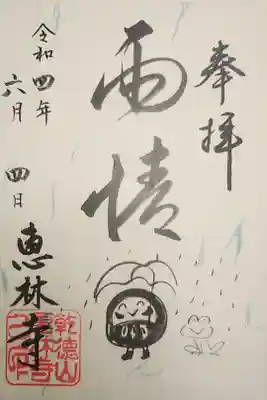 奉拝
雨情
令和四年
六月 四日
恵林寺
乾徳山